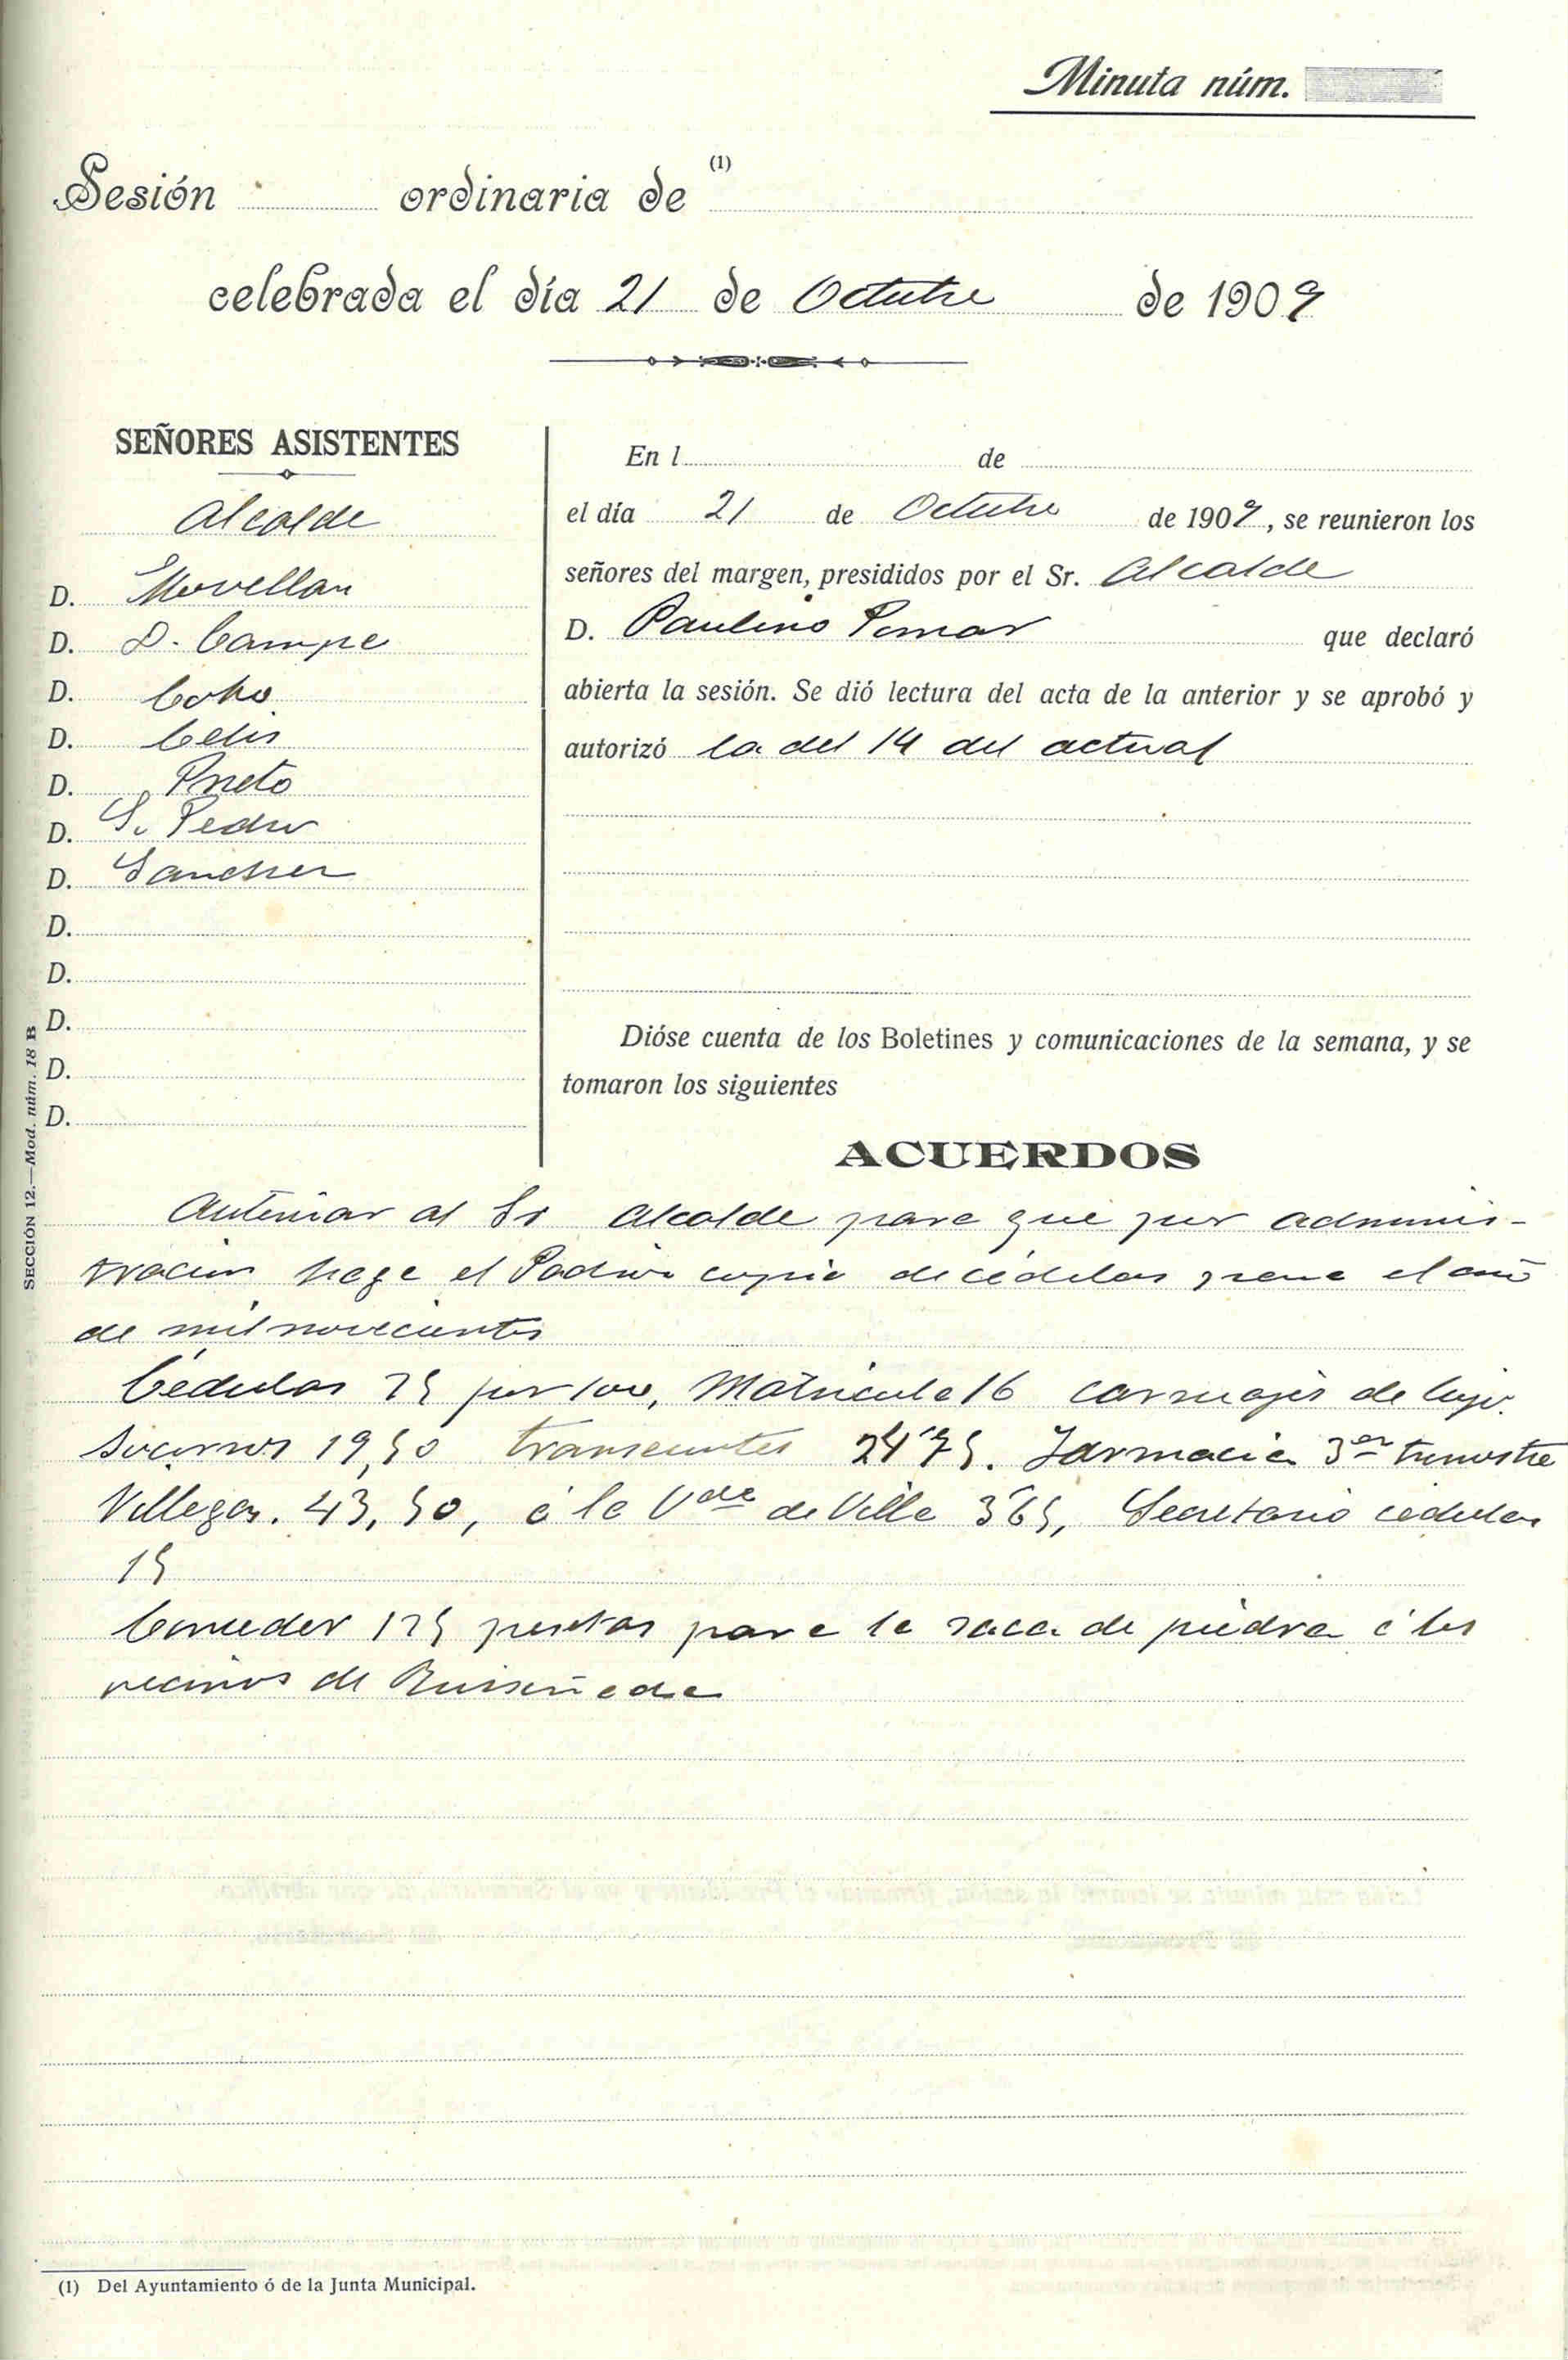 Minuta núm.
Sesión ordinaria de (1)
celebrada el día 21 de Octubre de 1909
SEÑORES ASISTENTES
Alcalde
D. Movellan
D. D. Campe
D. Coho
D. Celis
D. Prieto
D. S. Pedro
D. Sanchez
D.
D.
D.
D.
D.
En l de
el día 21 de Octubre de 1909, se reunieron los
señores del margen, presididos por el Sr. Alcalde
D. Paulino Pomar que declaró
abierta la sesión. Se dió lectura del acta de la anterior y se aprobó y
autorizó la del 14 del actual
Dióse cuenta de los Boletines y comunicaciones de la semana, y se
tomaron los siguientes
ACUERDOS
Autorizar al Sr Alcalde para que por adminis-
tracion haga el Padron copia de cédulas para el año
de mil novecientos
Cédulas 75 por 100, Matricula 16 carruajes de lujo.
Socorros 19,50 transeuntes 24'75. Farmacia 3er trimestre
Villegas. 43,50, á la Vda de Villa 3'65, Secretario cedulas
15
Conceder 125 pesetas para la saca de piedra á los
vecinos de Ruiseñada
SECCIÓN 12.—Mod. núm. 18 B
(1) Del Ayuntamiento ó de la Junta Municipal.